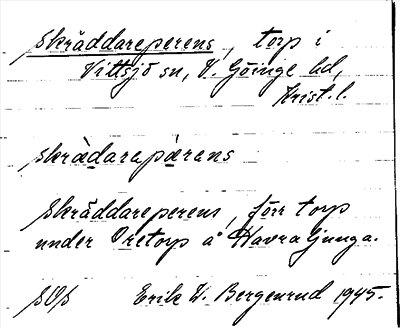 Skräddareperens, torp i
Vittsjö sn, V. Göinge hd,
Krist.l.
skrädarapärens
Skräddareperens, förr torp
under Oretorp å Havraljunga.
SOS Erik W. Bergenrud 1945.